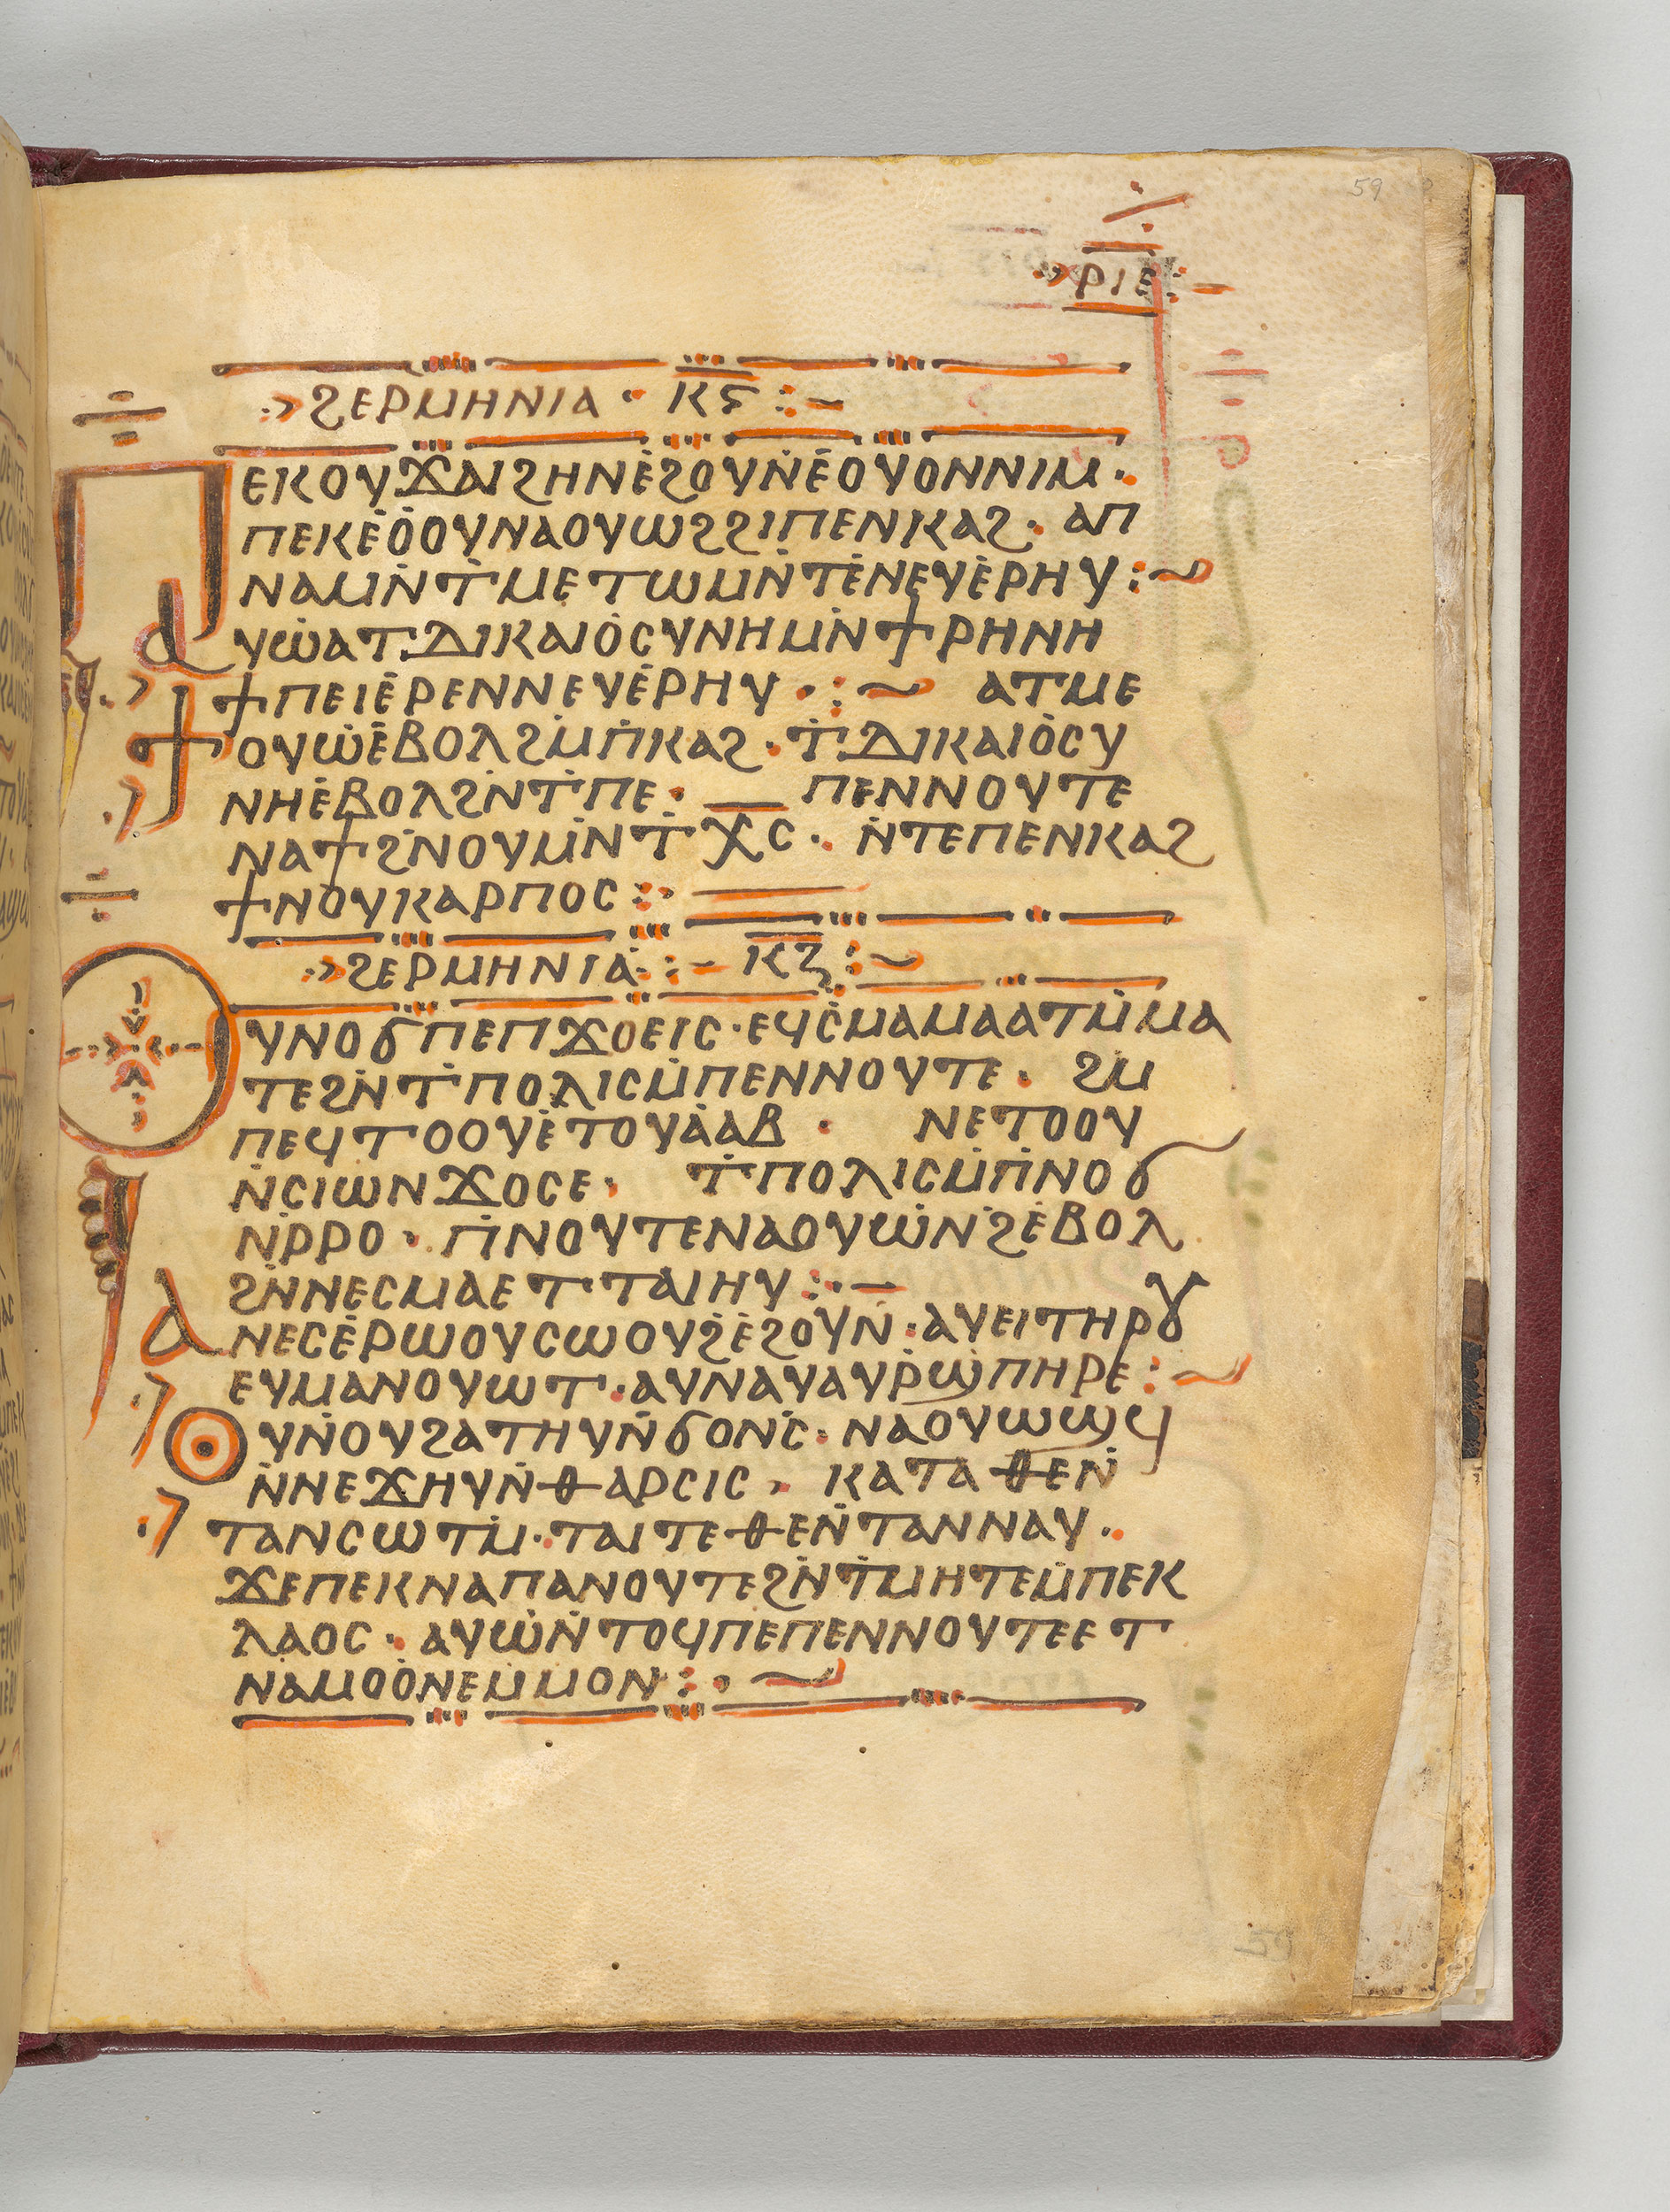 59
ⲣⲓⲉ
ϩⲉⲣⲙⲏⲛⲓⲁ · ⲕⲋ
ⲡⲉⲕⲟⲩϫⲁⲓϩⲏⲛⲉ̇ϩⲟⲩⲛ̇ⲉ̇ⲟⲩⲟⲛⲛⲓⲙ ·
ⲡⲉⲕⲉ̇ⲟ̇ⲟⲩⲛⲁⲟⲩⲱϩϩⲓⲡⲉⲛⲕⲁϩ · ⲁⲡ
ⲛⲁⲙⲛ̇ⲧ̇ⲙⲉⲧⲱⲙⲛ̇ⲧⲉ̇ⲛⲉⲩⲉ̇ⲣⲏⲩ :~
ⲁⲩⲱ̇ⲁⲧ̇ⲇⲓⲕⲁⲓⲟ̇ⲥⲩⲛⲏⲙⲛ̇ϯⲣⲏⲛⲏ
ϯⲡⲉⲓⲉ̇ⲣⲉⲛⲛⲉⲩⲉ̇ⲣⲏⲩ · :~ ⲁⲧⲙⲉ
ϯⲟⲩⲱ̇ⲉ̇ⲃⲟⲗϩⲙ̇ⲡ̇ⲕⲁϩ · ⲧ̇ⲇⲓⲕⲁⲓⲟ̇ⲥⲩ
ⲛⲏⲉ̇ⲃⲟⲗϩⲛ̇ⲧ̇ⲡⲉ · ⲡⲉⲛⲛⲟⲩⲧⲉ
ⲛⲁϯϩⲛ̇ⲟⲩⲙⲛ̇ⲧ̇ⲭⲥ · ⲛ̇ⲧⲉⲡⲉⲛⲕⲁϩ
ϯⲛⲟⲩⲕⲁⲣⲡⲟⲥ :·
ϩⲉⲣⲙⲏⲛⲓⲁ̇ :– ⲕⲍ :~
ⲟⲩⲛⲟϭⲡⲉⲡϫⲟⲉⲓⲥ · ⲉϥⲥ̇ⲙⲁⲙⲁⲁⲧⲙ̇ⲙⲁ
ⲧⲉϩⲛ̇ⲧ̇ⲡⲟⲗⲓⲥⲙ̇ⲡⲉⲛⲛⲟⲩⲧⲉ · ϩⲙ
ⲡⲉϥⲧⲟⲟⲩⲉ̇ⲧⲟⲩⲁ̇ⲁⲃ · ⲛⲉⲧⲟⲟⲩ
ⲛ̇ⲥⲓⲱⲛϫⲟⲥⲉ · ⲧ̇ⲡⲟⲗⲓⲥⲙ̇ⲡ̇ⲛⲟϭ
ⲛ̇ⲣ̇ⲣⲟ · ⲡ̇ⲛⲟⲩⲧⲉⲛⲁⲟⲩⲱ̇ⲛ̇ϩ̇ⲉ̇ⲃⲟⲗ
ϩⲛ̇ⲛⲉⲥⲙⲁⲉⲧ̇ⲧⲁⲓⲏⲩ :·–
ⲁⲛⲉⲥⲉ̇ⲣⲱⲟⲩⲥⲱⲟⲩϩ̇ⲉ̇ϩⲟⲩⲛ̇ · ⲁⲩⲉⲓⲧⲏⲣⲟⲩ
ⲉⲩⲙⲁⲛⲟⲩⲱⲧ · ⲁⲩⲛⲁⲩⲁⲩⲣ̇ϣ̇ⲡⲏⲣⲉ :~
ⲟⲩⲛ̇ⲟⲩϩⲁⲧⲏⲩⲛ̇ϭⲟⲛⲥ̇ · ⲛⲁⲟⲩⲱϣϥ
ⲛ̇ⲛⲉϫⲏⲩⲛ̇ⲑⲁⲣⲥⲓⲥ · ⲕⲁⲧⲁⲑⲉⲛ̇
ⲧⲁⲛⲥⲱⲧⲙ̇ · ⲧⲁⲓⲧⲉⲑⲉⲛ̇ⲧⲁⲛⲛⲁⲩ ·
ϫⲉⲡⲉⲕⲛⲁⲡⲁⲛⲟⲩⲧⲉϩⲛ̇ⲧ̇ⲙⲏⲧⲉⲙ̇ⲡⲉⲕ
ⲗⲁⲟⲥ · ⲁⲩⲱ̇ⲛ̇ⲧⲟϥⲡⲉⲡⲉⲛⲛⲟⲩⲧⲉⲉⲧ
ⲛⲁⲙⲟⲟ̇ⲛⲉⲙ̇ⲙⲟⲛ :·~